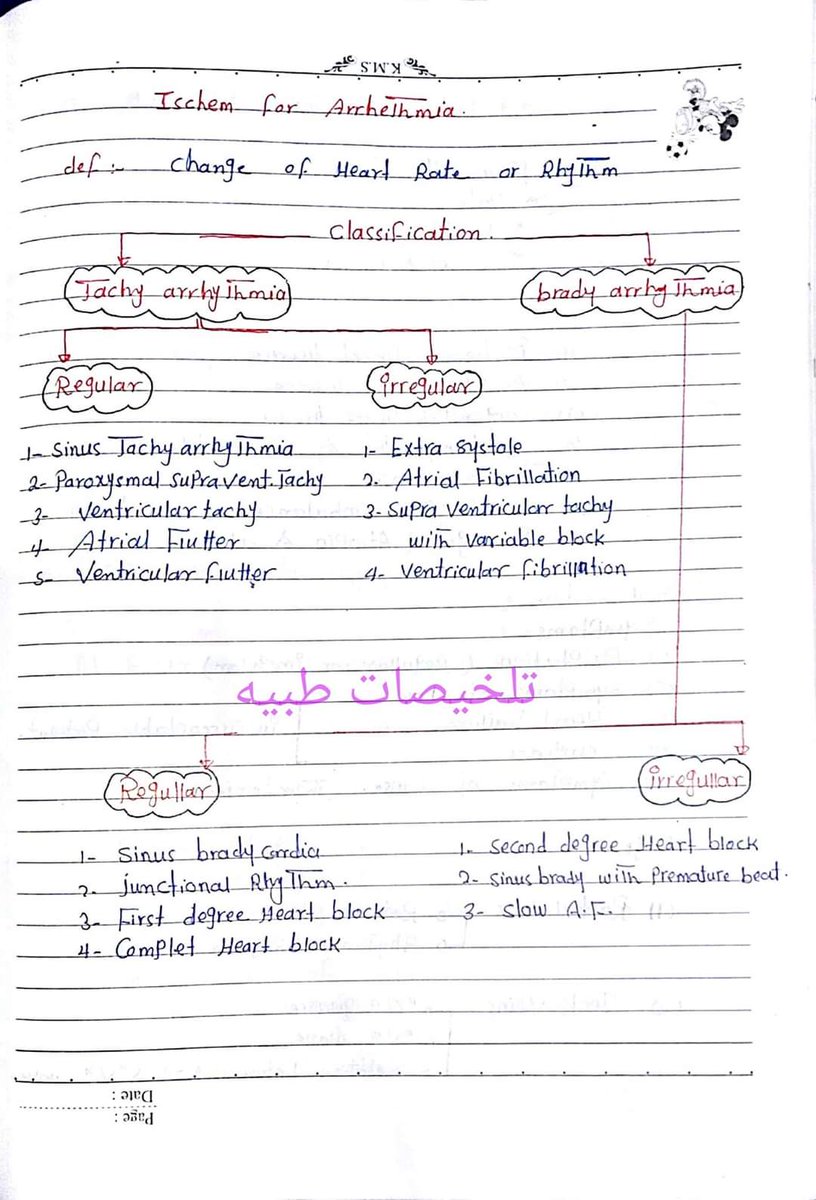 K.M.S
Ischem for Arrhethmia.
def :- change of Heart Rate or Rhythm
Classification.
Tachy arrhythmia brady arrhythmia
Regular irregular
1- Sinus Tachy arrhythmia 1- Extra systole
2- Paroxysmal supra vent. Tachy 2. Atrial Fibrillation
3- Ventricular tachy 3- Supra ventricular tachy
4- Atrial Flutter with variable block
5- Ventricular flutter 4- Ventricular fibrillation
تلخيصات طبيه
Regullar irregullar
1- Sinus brady cardia 1- Second degree Heart block
2- junctional Rhythm. 2- Sinus brady with Premature beat.
3- First degree Heart block 3- Slow A.F.
4- Complet Heart block
Date :
Page :